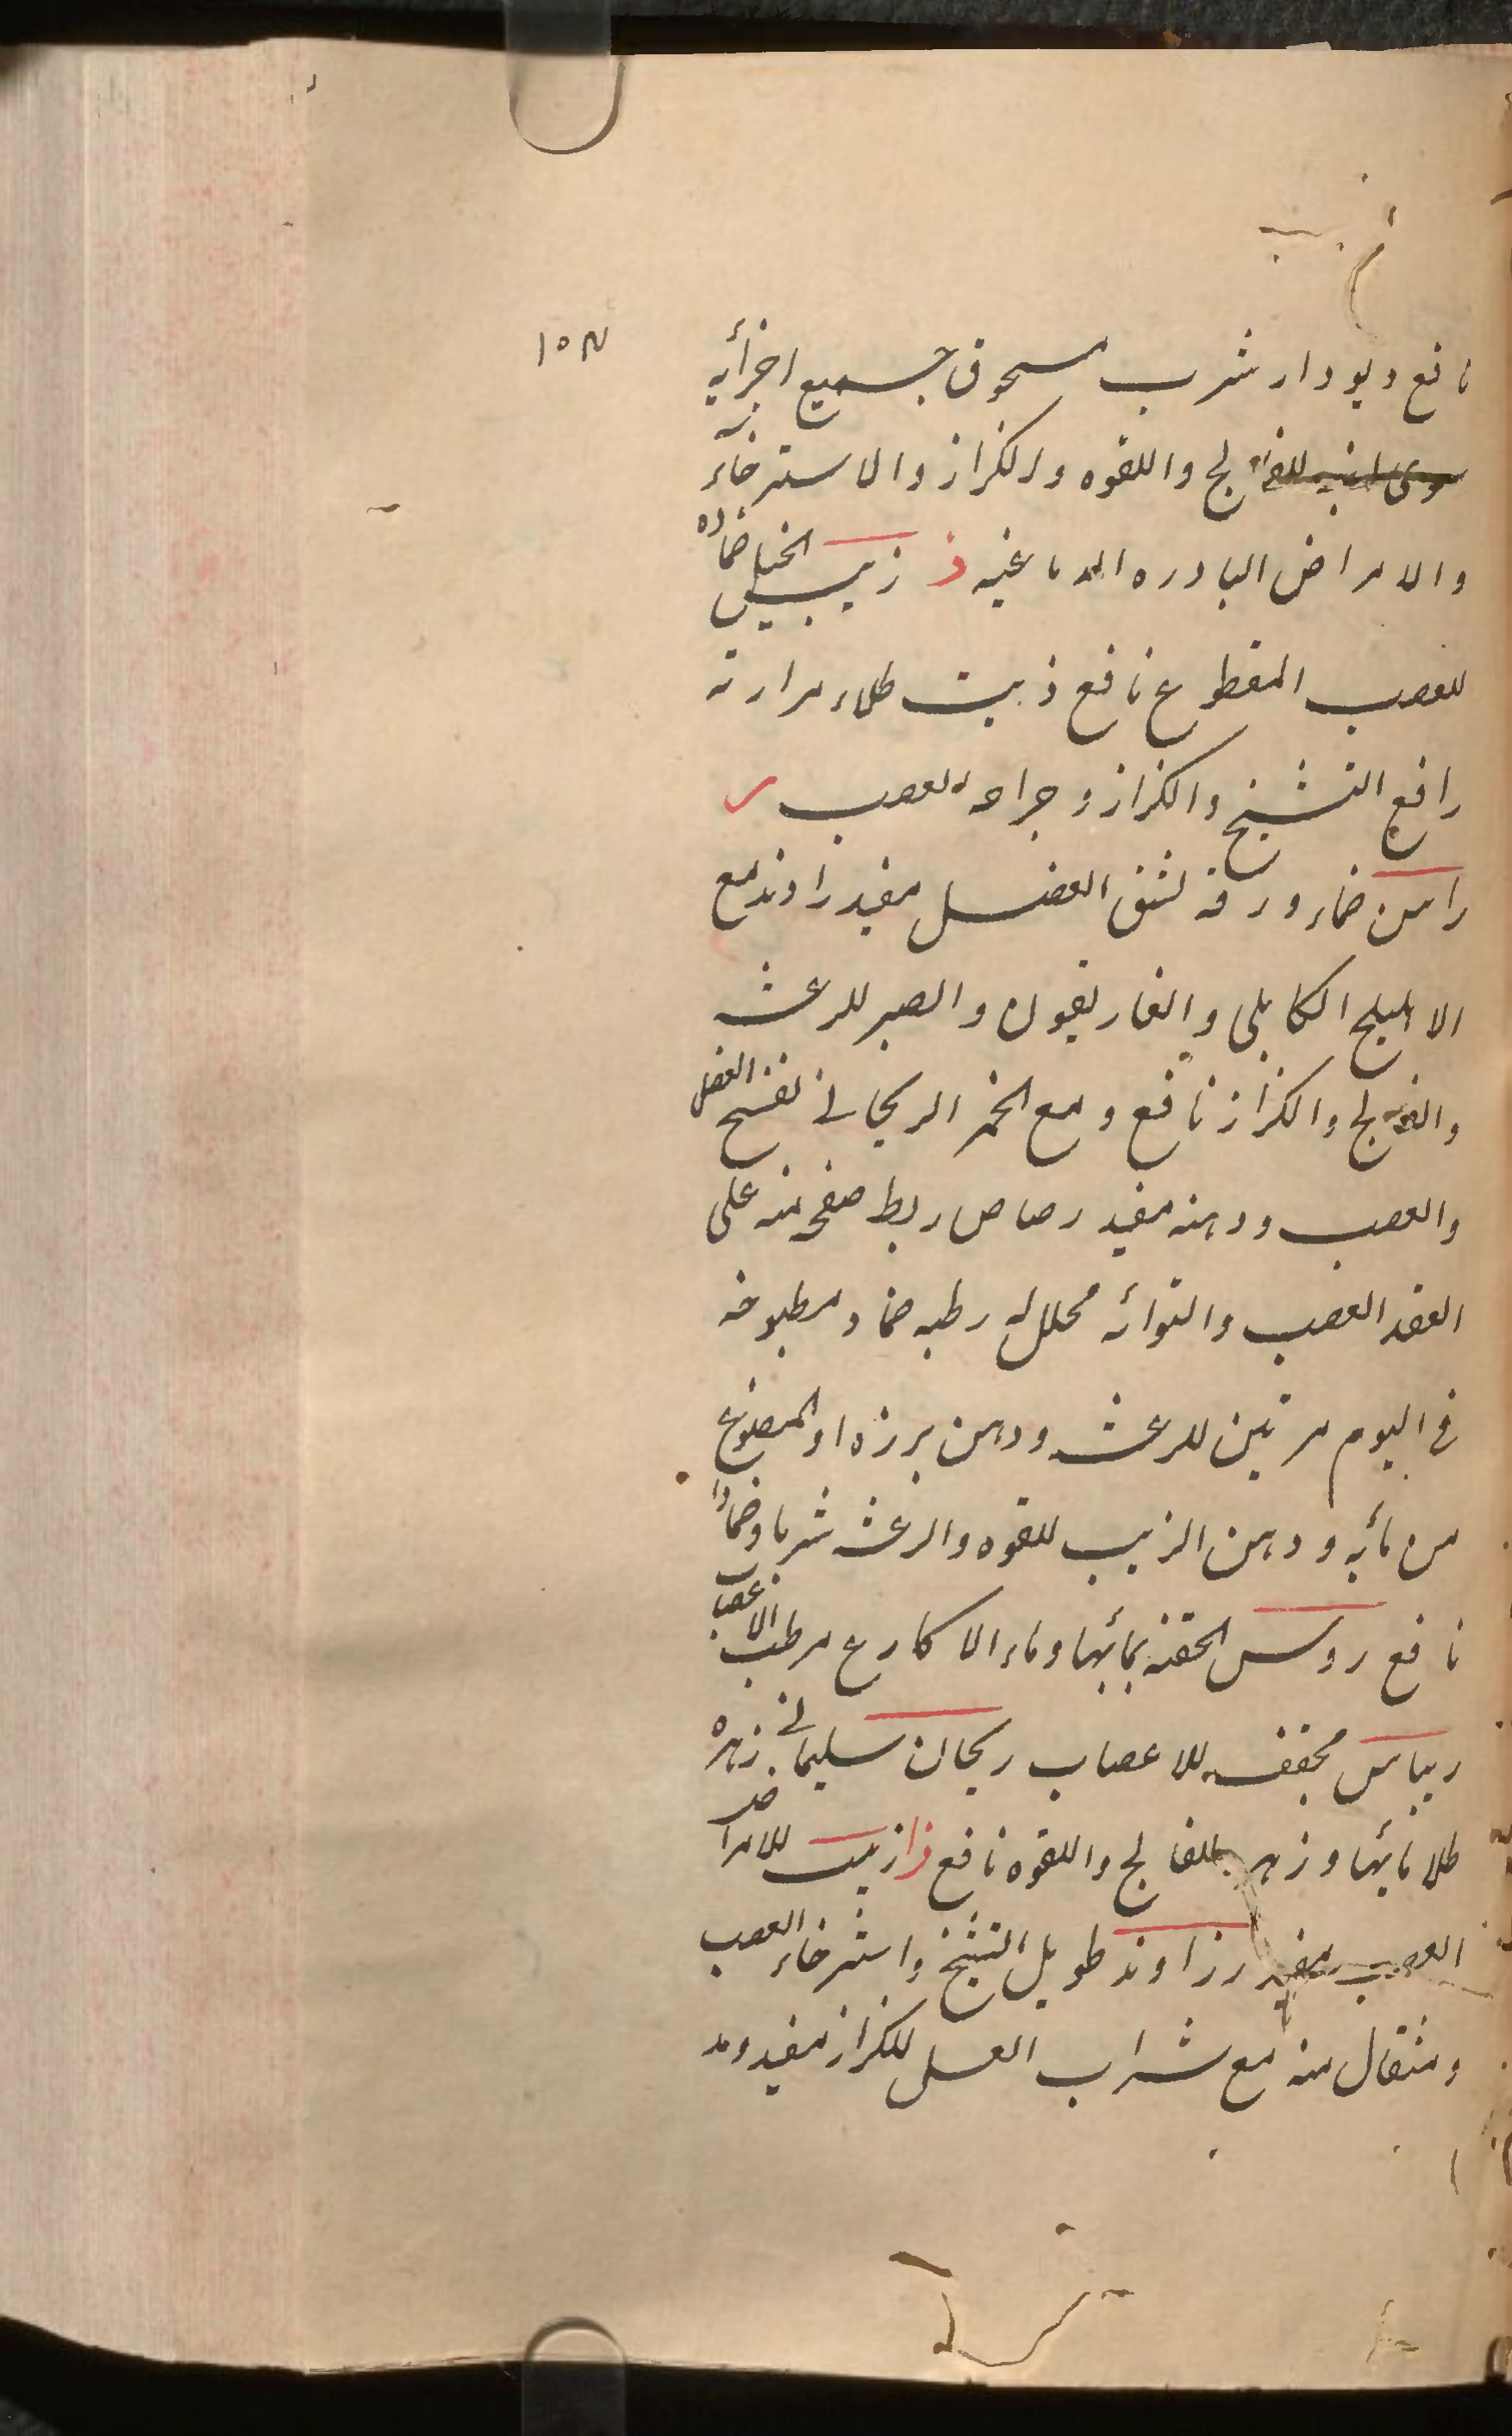 ١٥٣
نافع ديودار شرب مسحوق جميع اجزأيه
للفالج واللقوه والكزاز والاسترخاء
والامراض البادره الدماغيه ذ زبيب الخيل ضماده
للعصب المقطوع نافع ذيب طلاء مرارته
رافع التشنج والكزاز وجراحه العصب ر
راسن ضماد ورقه لشق العضل مفيد راوند مع
الاهليلج الكابلى والغاريقون والصبر للرعشه
والفالج والكزاز نافع ومع الخمر الريحانى لفسخ العضل
والعصب ودهنه مفيد رصاص ربط صفحه منه على
العقد العصب والتوائه محلل له رطبه ضماد مطبوخه
فى اليوم مرتين للرعشه ودهن بزره او المصنوع
من مائه ودهن الزيت للقوه والرعشه شربا وضمادا
نافع روس الحقنه بمائها وماء الاكارع مرطب الاعصاب
ريباس مجفف للاعصاب ريحان سليمانى زهره
طلا مائها وزهر للفالج واللقوه نافع ز زيت للامراض
العصب مفيد زراوند طويل التشنج واسترخاء العصب
ومثقال منه مع شراب العسل للكزاز مفيد ومد